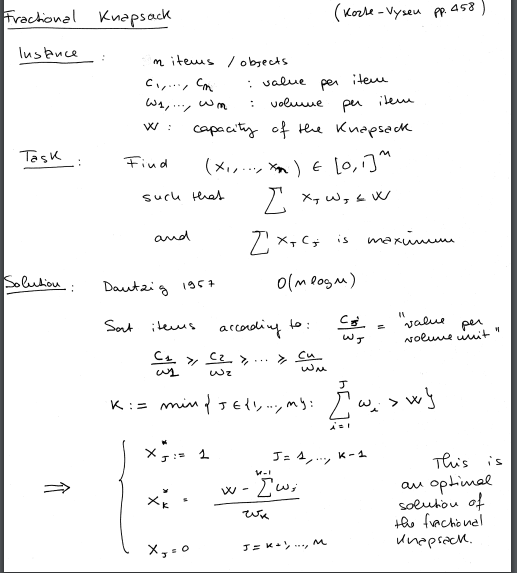 Fractional Knapsack (Korte-Vysen pp. 458)
Instance : n items / objects
c₁, ..., cₙ : value per item
w₁, ..., wₙ : volume per item
W : capacity of the Knapsack
Task : Find (x₁, ..., xₙ) ∈ [0,1]ⁿ
such that ∑ x_J w_J ≤ W
and ∑ x_J c_J is maximum
Solution : Dantzig 1957 O(n log n)
Sort items according to: c_J/w_J = "value per volume unit"
c₁/w₁ ≥ c₂/w₂ ≥ ... ≥ cₙ/wₙ
K := min{ J ∈ {1, ..., n}: ∑_{i=1}^{J} w_i > W}
⇒ { x*_J := 1 J = 1, ..., K-1
x*_K = (W - ∑^{K-1} w_J) / w_K
x_J = 0 J = K+1, ..., n
This is
an optimal
solution of
the fractional
Knapsack.